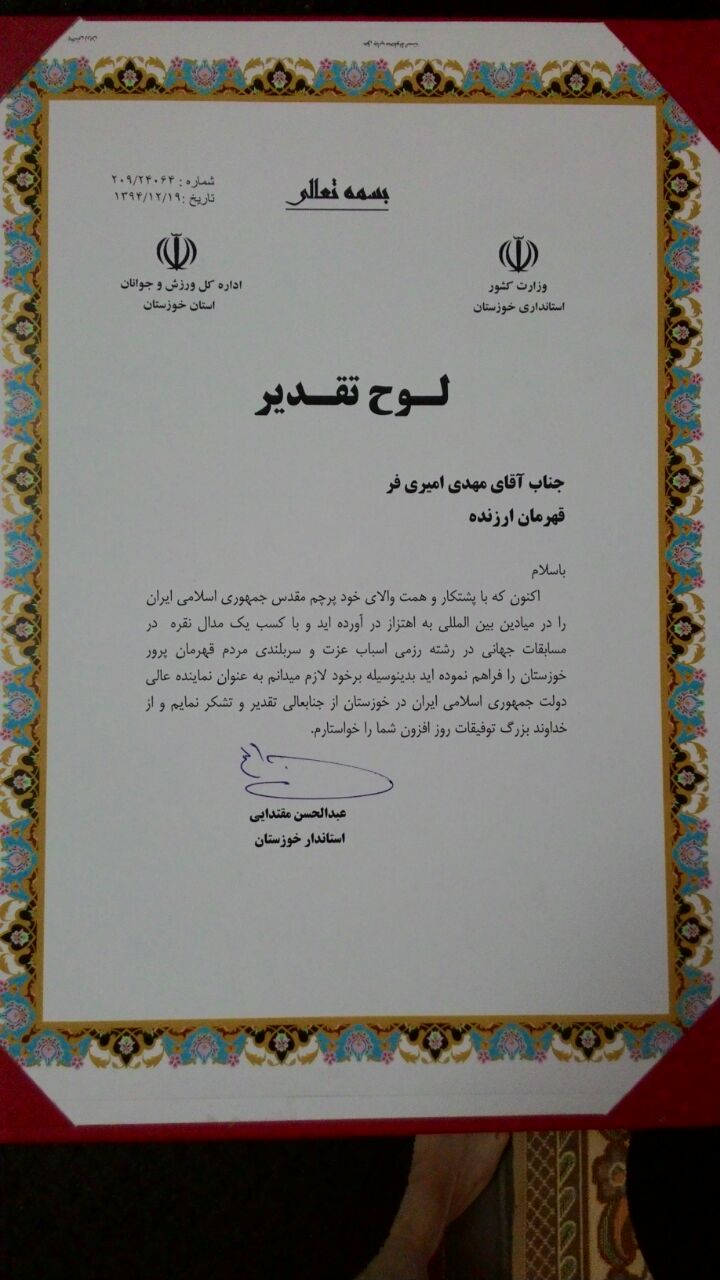 حق چاپ محفوظ است
بسمه تعالی
شماره : ۲۰۹/۲۴۰۶۴
تاریخ :۱۳۹۴/۱۲/۱۹
وزارت کشور
استانداری خوزستان
اداره کل ورزش و جوانان
استان خوزستان
لوح تقدیر
جناب آقای مهدی امیری فر
قهرمان ارزنده
باسلام
اکنون که با پشتکار و همت والای خود پرچم مقدس جمهوری اسلامی ایران
را در میادین بین المللی به اهتزاز در آورده اید و با کسب یک مدال نقره در
مسابقات جهانی در رشته رزمی اسباب عزت و سربلندی مردم قهرمان پرور
خوزستان را فراهم نموده اید بدینوسیله برخود لازم میدانم به عنوان نماینده عالی
دولت جمهوری اسلامی ایران در خوزستان از جنابعالی تقدیر و تشکر نمایم و از
خداوند بزرگ توفیقات روز افزون شما را خواستارم.
عبدالحسن مقتدایی
استاندار خوزستان